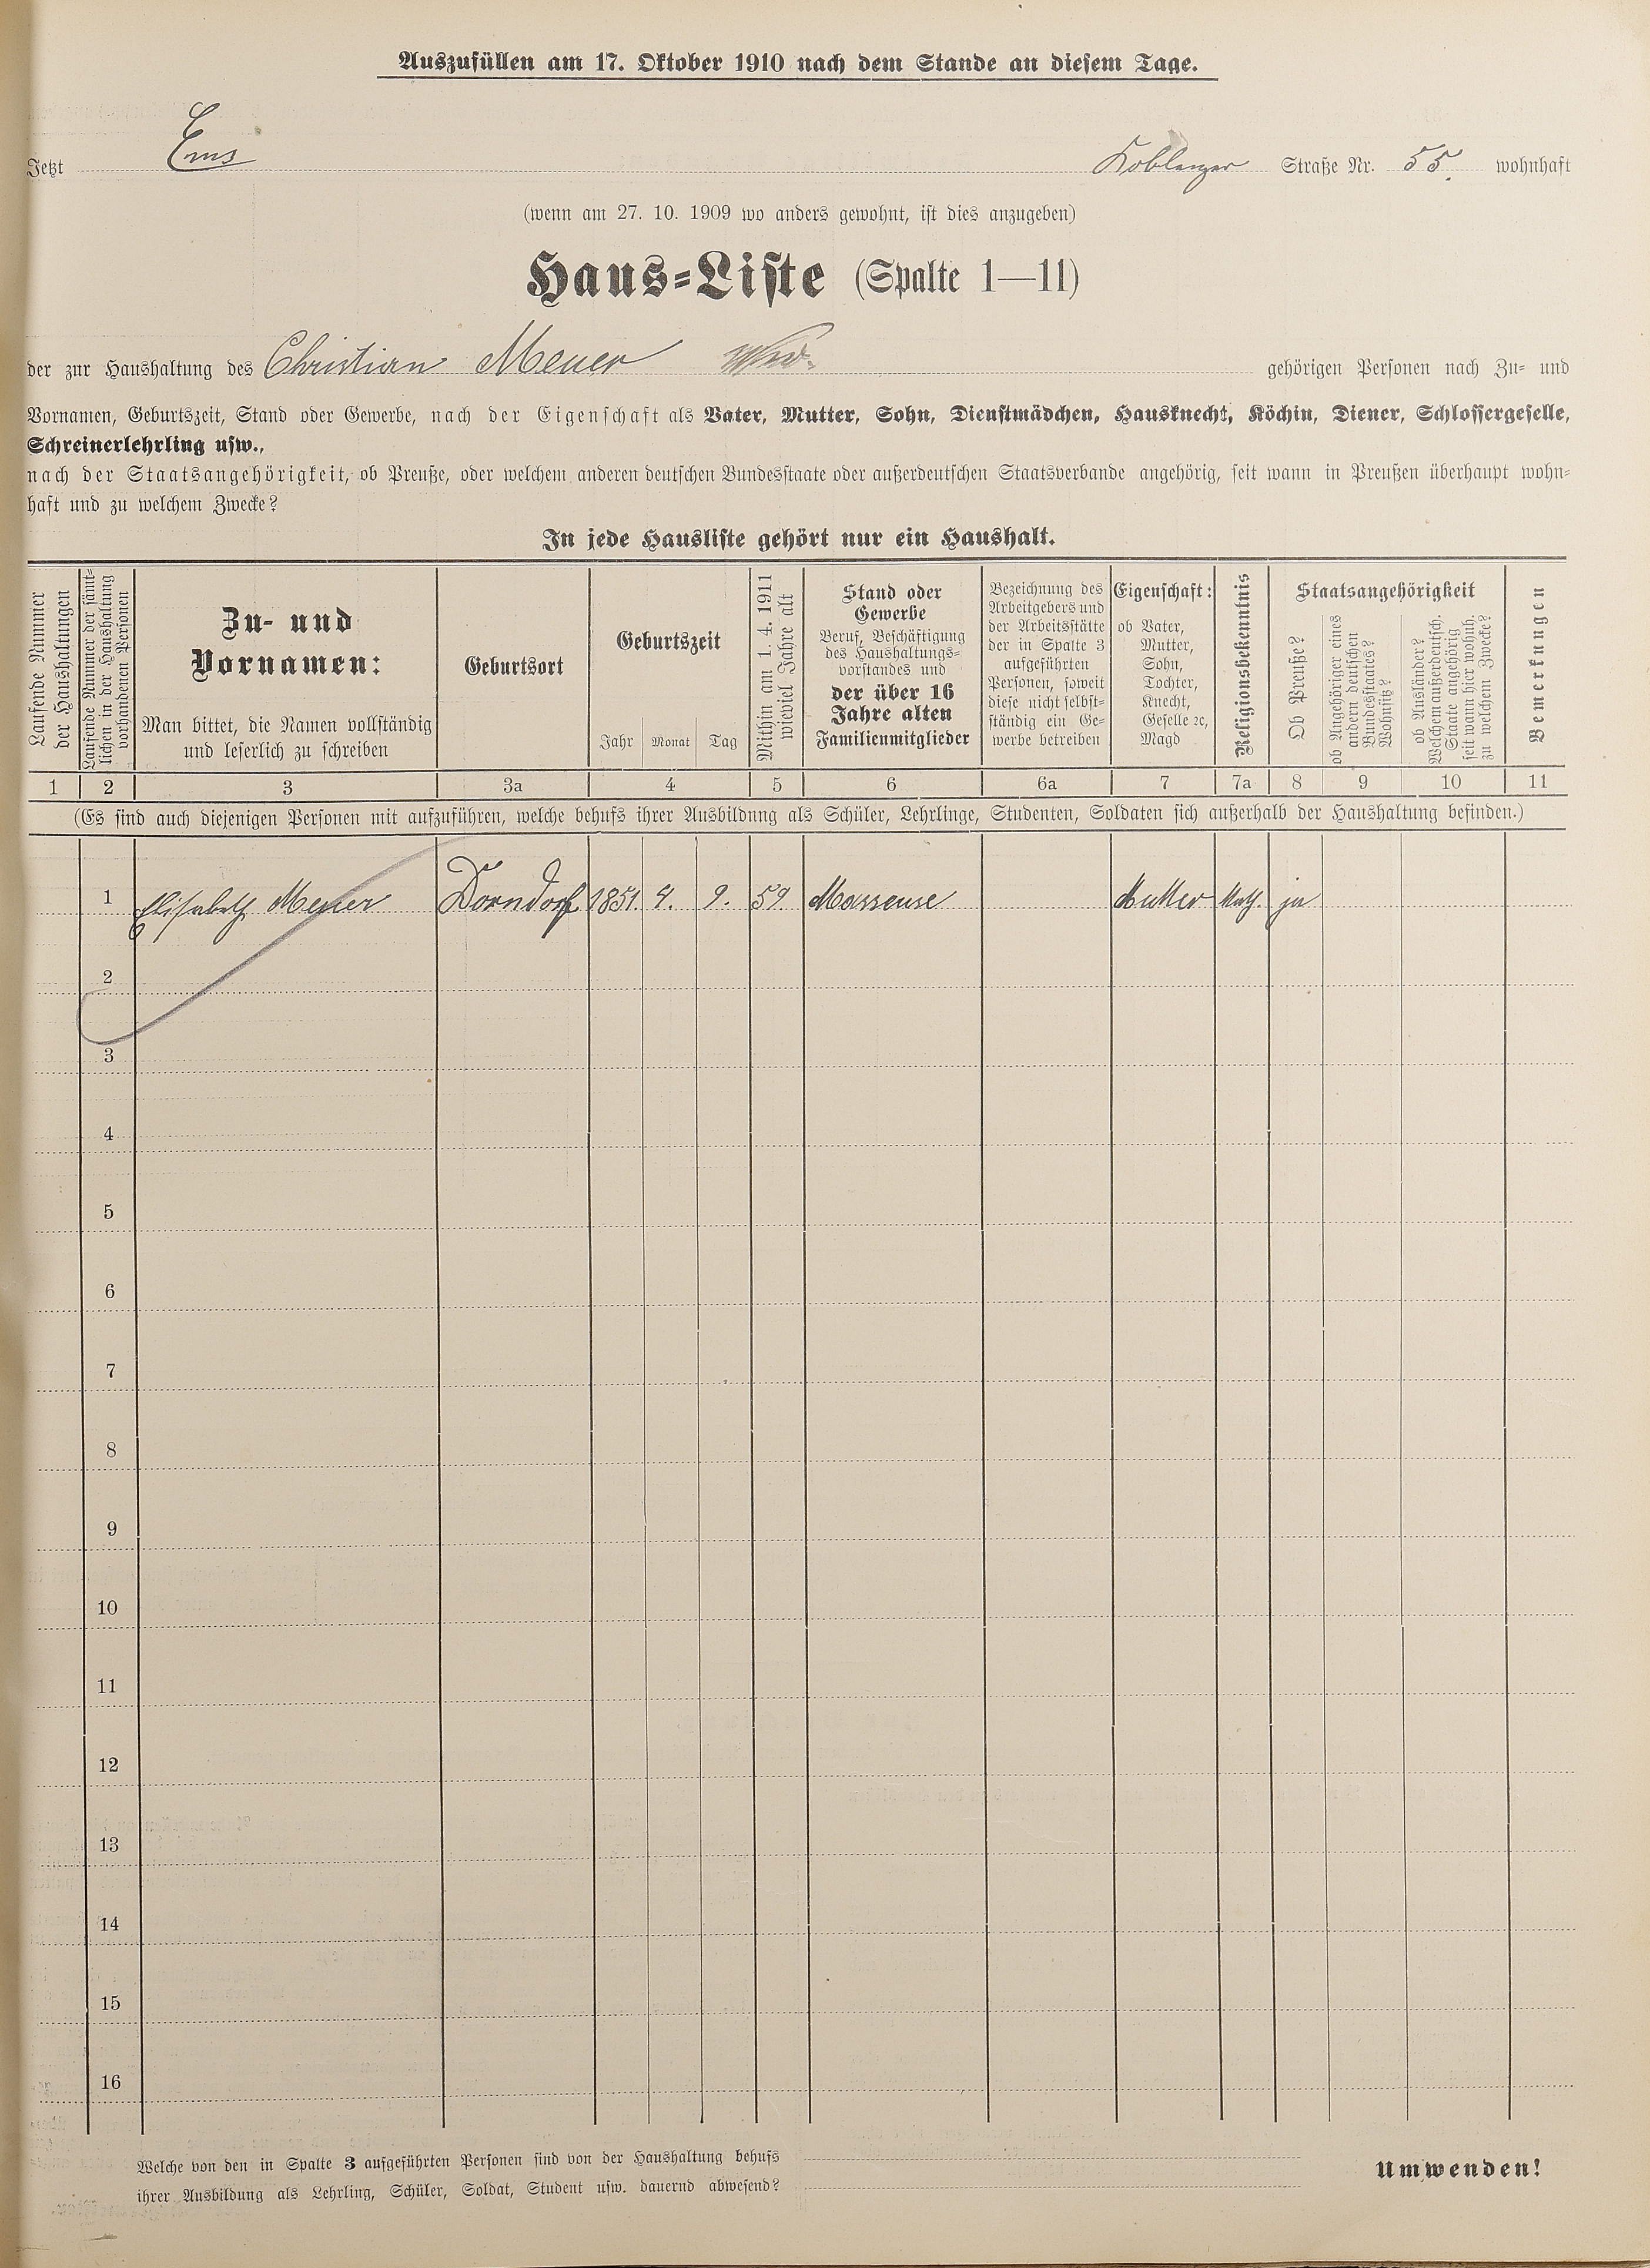 Auszufüllen am 17. Oktober 1910 nach dem Stande an diesem Tage.
Jetzt Ems Koblenzer Straße Nr. 55. wohnhaft
(wenn am 27. 10. 1909 wo anders gewohnt, ist dies anzugeben)
Haus-Liste (Spalte 1—11)
der zur Haushaltung des Christian Meuer Wwe. gehörigen Personen nach Zu- und
Vornamen, Geburtszeit, Stand oder Gewerbe, nach der Eigenschaft als Vater, Mutter, Sohn, Dienstmädchen, Hausknecht, Köchin, Diener, Schlossergeselle,
Schreinerlehrling usw.,
nach der Staatsangehörigkeit, ob Preuße, oder welchem anderen deutschen Bundesstaate oder außerdeutschen Staatsverbande angehörig, seit wann in Preußen überhaupt wohn-
haft und zu welchem Zwecke?
In jede Hausliste gehört nur ein Haushalt.
Laufende Nummer
der Haushaltungen
Laufende Nummer der sämt-
lichen in der Haushaltung
vorhandenen Personen
Zu- und
Vornamen:
Man bittet, die Namen vollständig
und leserlich zu schreiben
Geburtsort
Geburtszeit
Jahr Monat Tag
Mithin am 1. 4. 1911
wieviel Jahre alt
Stand oder
Gewerbe
Beruf, Beschäftigung
des Haushaltungs-
vorstandes und
der über 16
Jahre alten
Familienmitglieder
Bezeichnung des
Arbeitgebers und
der Arbeitsstätte
der in Spalte 3
aufgeführten
Personen, soweit
diese nicht selbst-
ständig ein Ge-
werbe betreiben
Eigenschaft:
ob Vater,
Mutter,
Sohn,
Tochter,
Knecht,
Geselle ꝛc,
Magd
Religionsbekenntnis
Staatsangehörigkeit
Ob Preuße?
ob Angehöriger eines
andern deutschen
Bundesstaates?
Wohnsitz?
ob Ausländer?
Welchem außerdeutsch.
Staate angehörig
seit wann hier wohnh.
zu welchem Zwecke?
Bemerkungen
1 2 3 3a 4 5 6 6a 7 7a 8 9 10 11
(Es sind auch diejenigen Personen mit aufzuführen, welche behufs ihrer Ausbildung als Schüler, Lehrlinge, Studenten, Soldaten sich außerhalb der Haushaltung befinden.)
1 Elisabeth Meuer Dorndorf 1851. 4. 9. 59 Masseuse Mutter kath. ja
2
3
4
5
6
7
8
9
10
11
12
13
14
15
16
Welche von den in Spalte 3 aufgeführten Personen sind von der Haushaltung behufs
ihrer Ausbildung als Lehrling, Schüler, Soldat, Student usw. dauernd abwesend?
Umwenden!